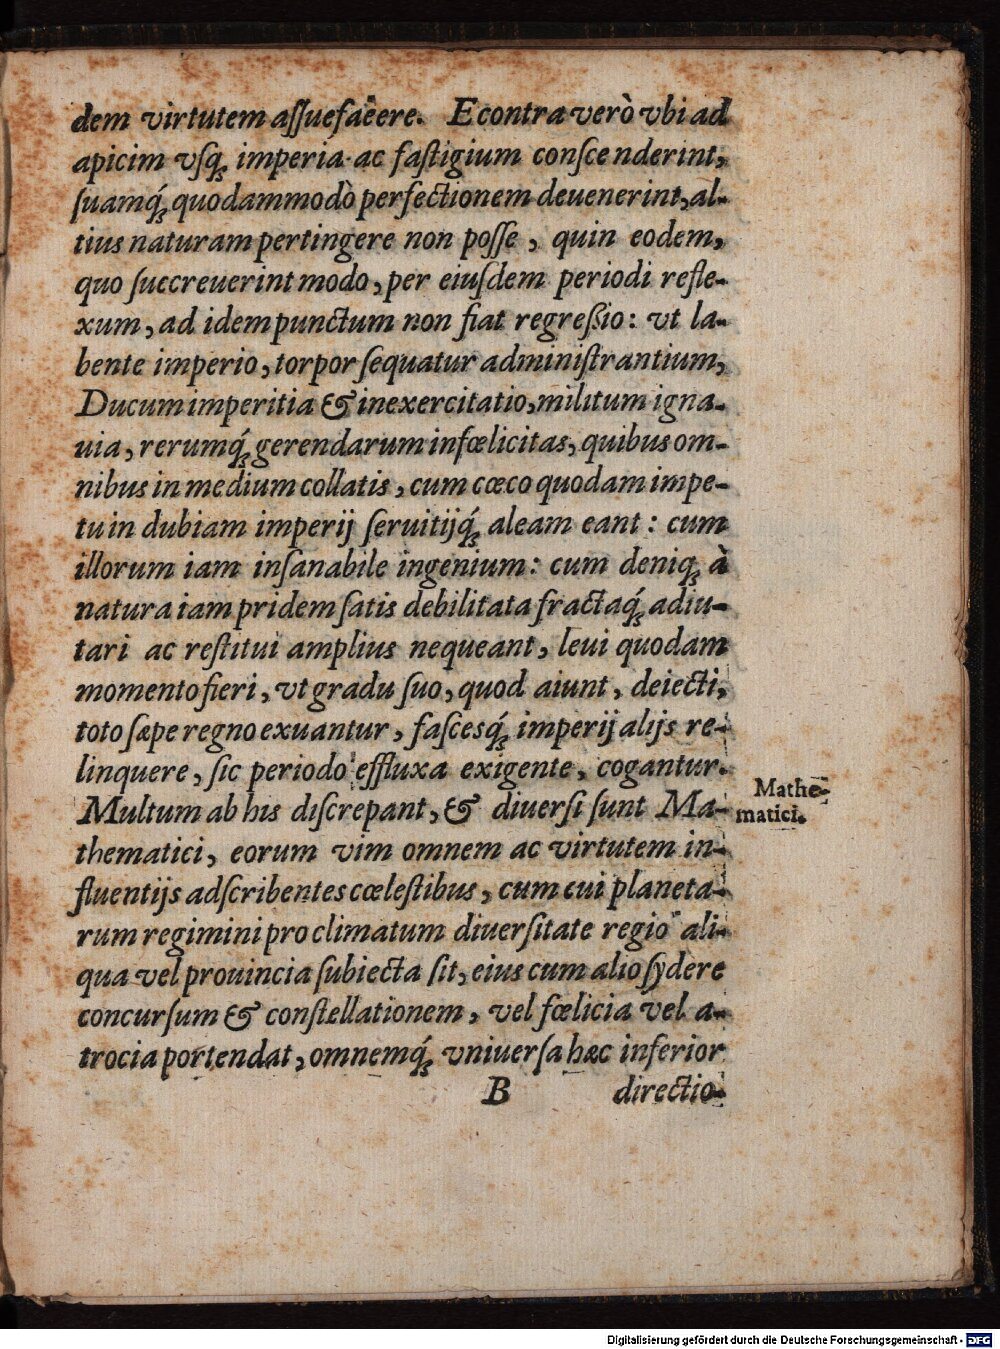 dem virtutem aſſuefacere. E contra verò vbi ad
apicim vſq; imperia ac faſtigium conſcenderint,
ſuamq́; quodammodò perfectionem deuenerint, al-
tius naturam pertingere non poſſe, quin eodem,
quo ſuccreuerint modo, per eiuſdem periodi refle-
xum, ad idem punctum non fiat regreßio: vt la-
bente imperio, torpor ſequatur adminiſtrantium,
Ducum imperitia & inexercitatio, militum igna-
uia, rerumq́; gerendarum infœlicitas, quibus om-
nibus in medium collatis, cum cœco quodam impe-
tu in dubiam imperij ſeruitijq́; aleam eant: cum
illorum iam inſanabile ingenium: cum deniq; à
natura iam pridem ſatis debilitata fractaq́; adiu-
tari ac reſtitui amplius nequeant, leui quodam
momento fieri, vt gradu ſuo, quod aiunt, deiecti,
toto ſæpe regno exuantur, faſcesq́; imperij alijs re-
linquere, ſic periodo effluxa exigente, cogantur.
Multum ab his diſcrepant, & diuerſi ſunt Ma-
thematici, eorum vim omnem ac virtutem in-
fluentijs adſcribentes cœleſtibus, cum cui planeta-
rum regimini pro climatum diuerſitate regio ali-
qua vel prouincia ſubiecta ſit, eius cum alio ſydere
concurſum & conſtellationem, vel fœlicia vel a-
trocia portendat, omnemq́; vniuerſa hæc inferior
B directio-
Mathe-
matici.
Digitalisierung gefördert durch die Deutsche Forschungsgemeinschaft - DFG